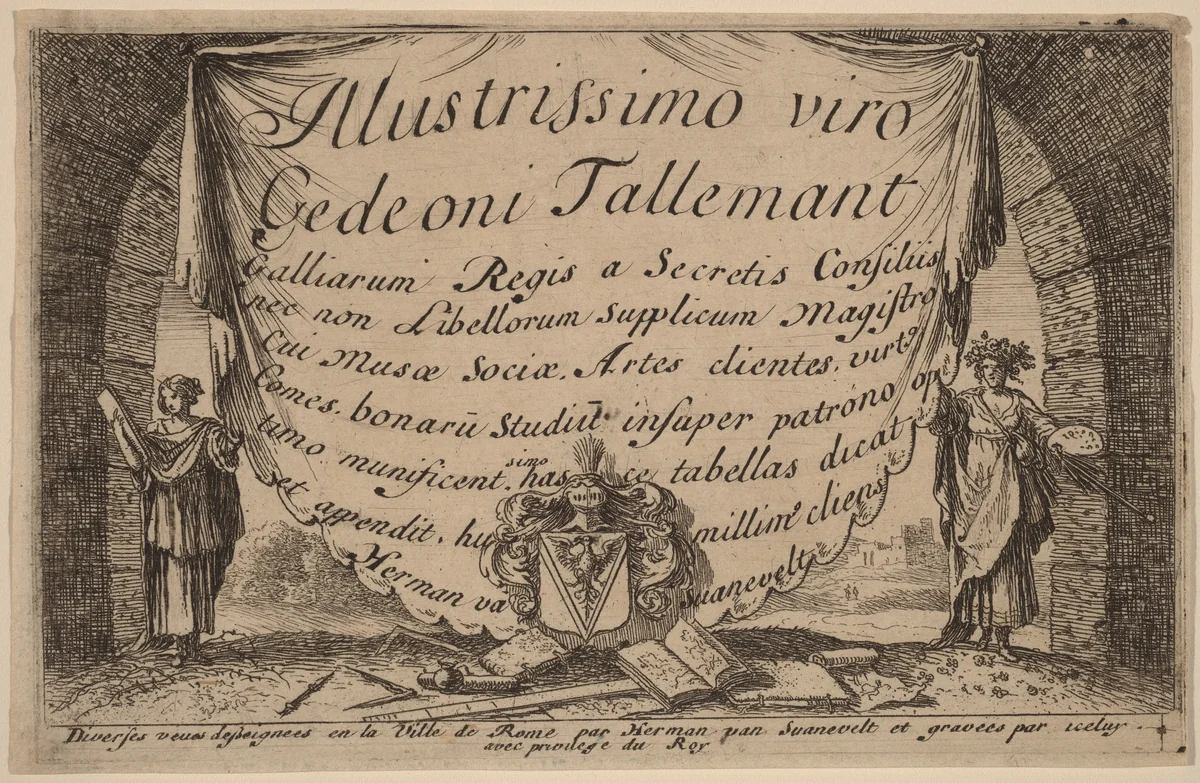 Illustrissimo viro
Gedeoni Tallemant
Galliarum Regis a Secretis Consiliis
nec non Libellorum supplicum Magistro
Cui Musæ Sociæ. Artes clientes. virt9
Comes. bonarū studiū insuper patrono op
timo munificent.simo hasce tabellas dicat
et appendit. hu millim9 cliens
Herman va suanevelt
Diverses veues desseignees en la Ville de Rome par Herman van Suanevelt et gravees par iceluy
avec privilege du Roy